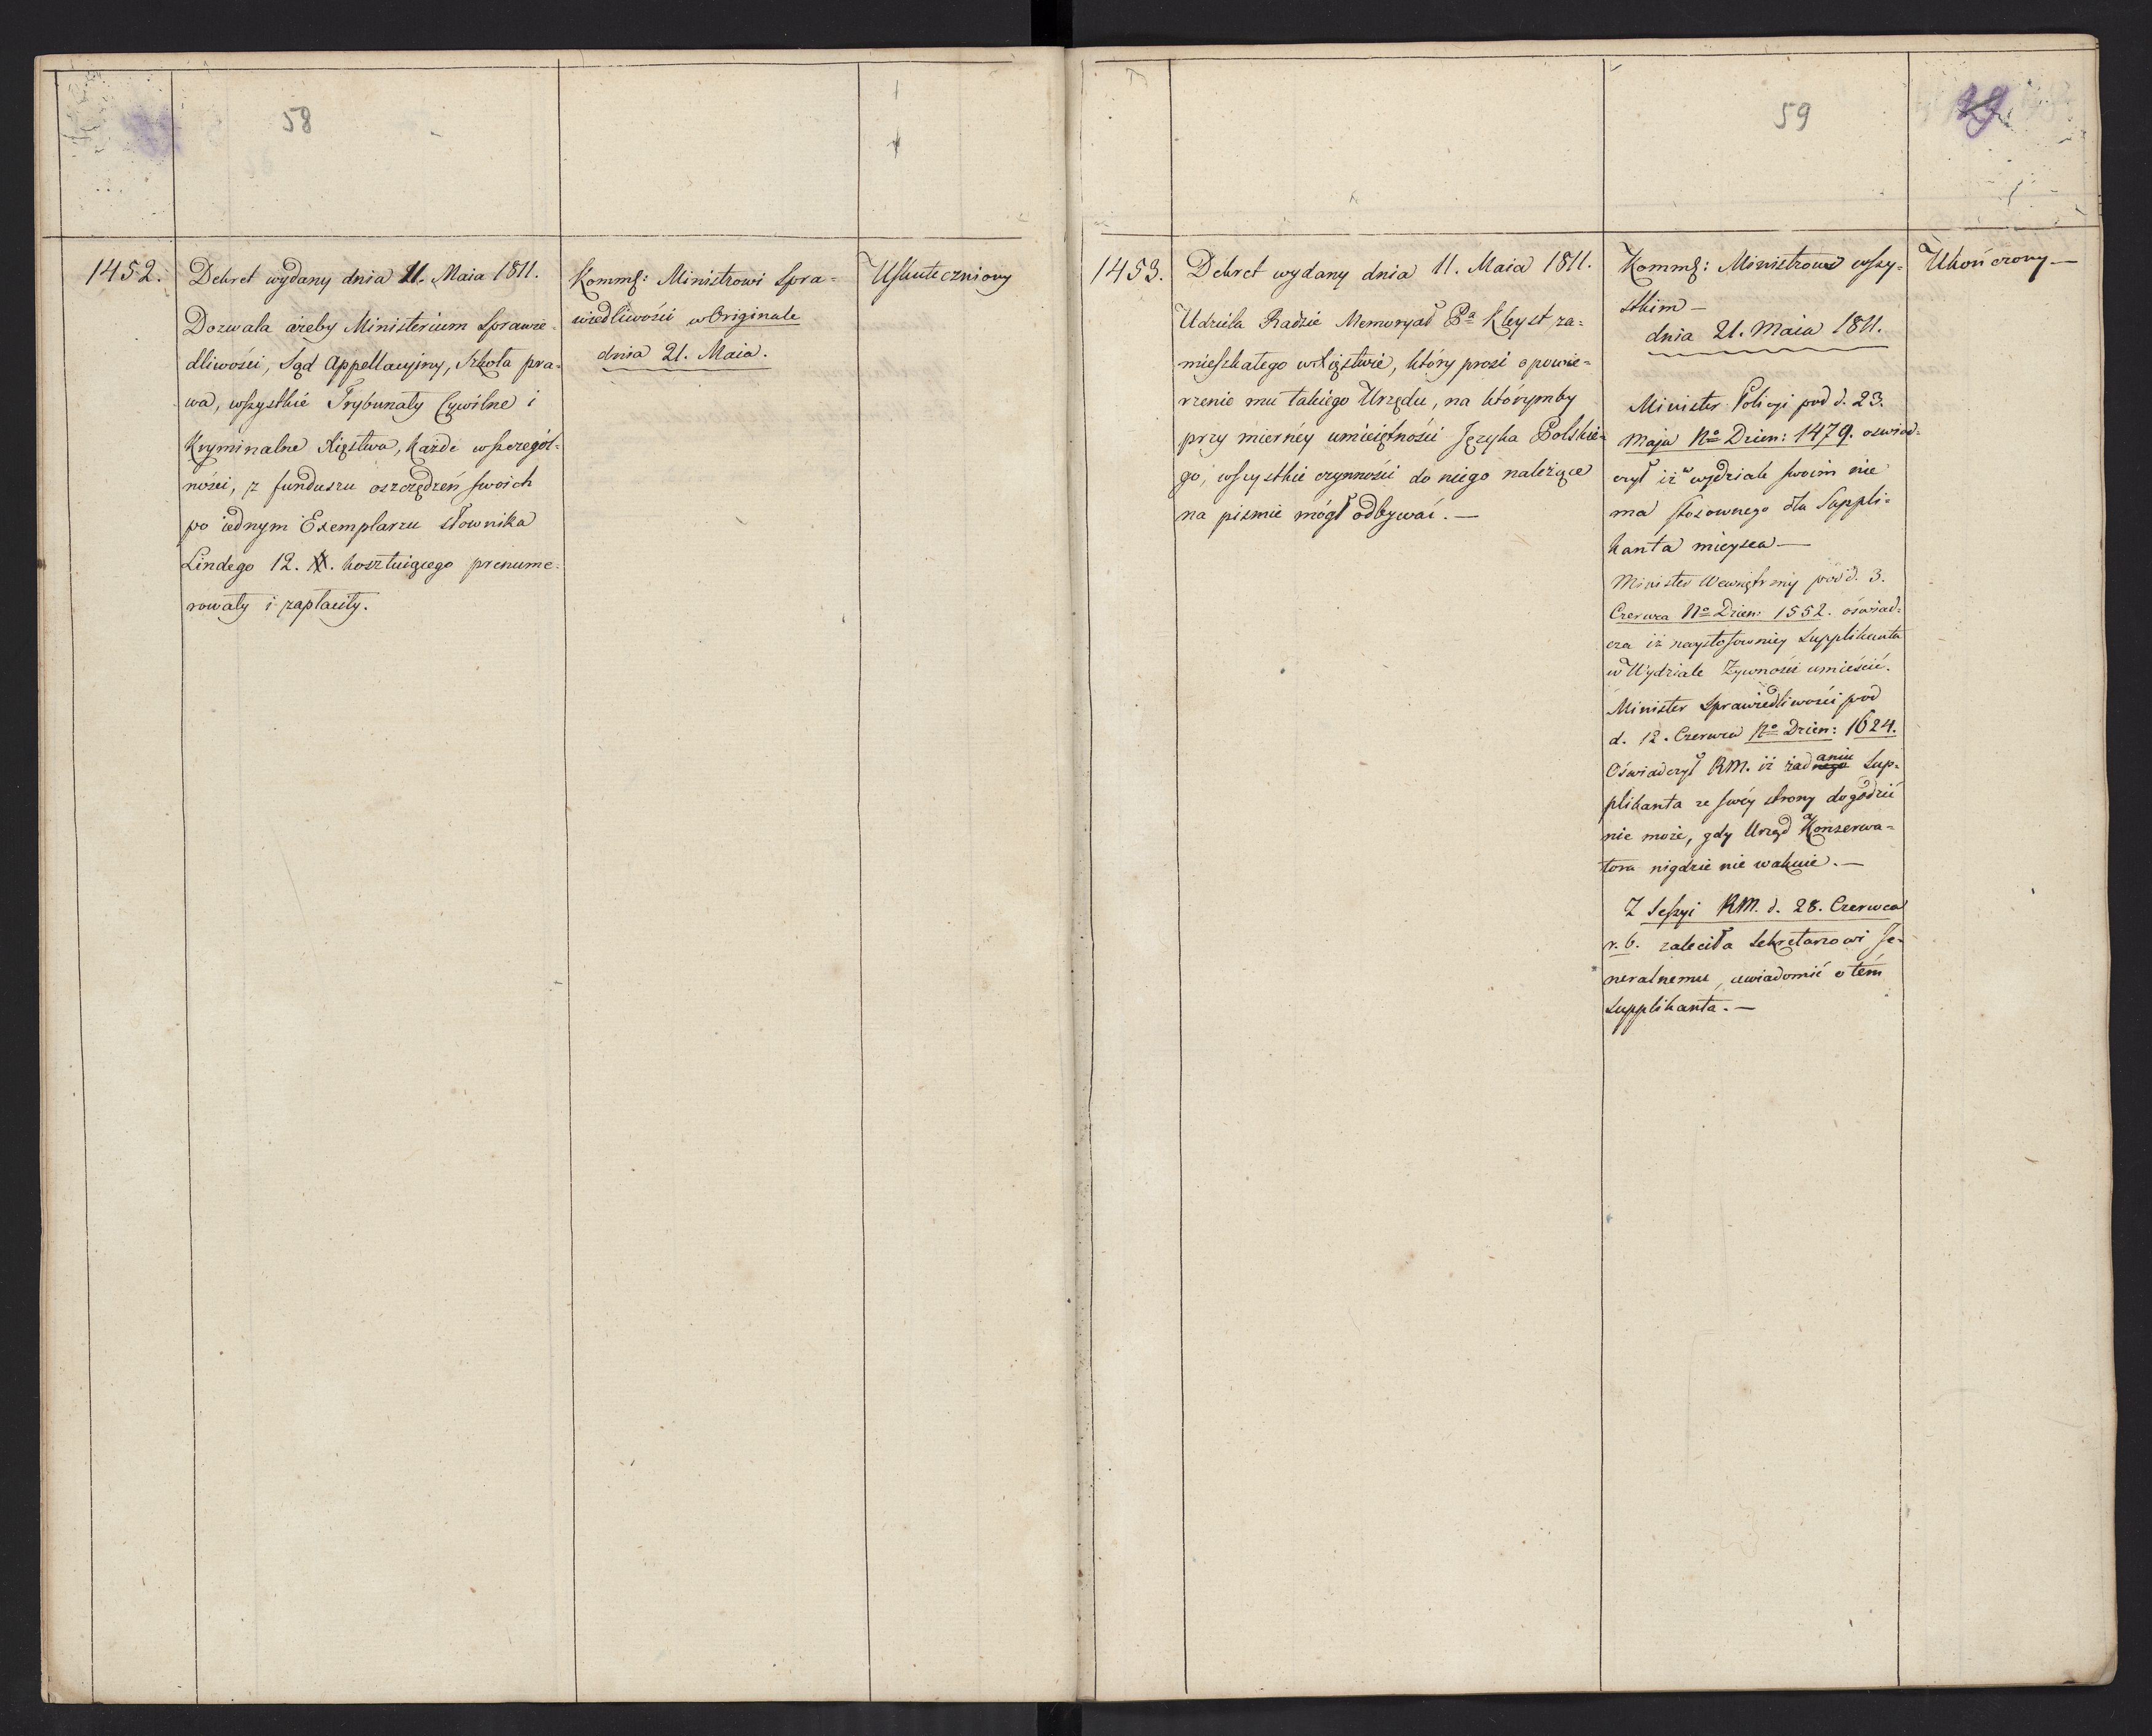 58
1452.
Dekret wydany dnia 11. Maia 1811.
Dozwala ażeby Ministerium Sprawie-
dliwości, Sąd Appellacyiny, Szkoła pra-
wa, wszystkie Trybunały Cywilne i
Kryminalne Xięstwa, każde wszczegól-
ności, z funduszu oszczędzeń swoich
po iednym Exemplarzu słownika
Lindego 12. #. kosztuiącego prenume-
rowały i zapłaciły.
Komms: Ministrowi Spra-
wiedliwości w Originale
dnia 21. Maia.
Uskuteczniony
59
29
1453.
Dekret wydany dnia 11. Maia 1811.
Udziela Radzie Memoryał Pa Kleyst za-
mieszkałego w Xięstwie, który prosi o powie-
rzenie mu takiego Urzędu, na którymby
przy mierney umieiętności Języka Polskie-
go, wszystkie czynności do niego należące
na pismie mógł odbywać. —
Komms: Ministrowi wszy-
stkim —
dnia 21. Maia 1811.
Minister Policyi pod d. 23.
Maja No Dzien: 1479. oswiad-
czył iż w wydziale swoim nie
ma stosownego dla Suppli-
kanta mieysca —
Minister Wewnętrzny pod d. 3.
Czerwca No Dzien: 1552. oświad-
cza iż naystosowniey Supplikanta
w Wydziale Żywności umieścić.
Minister Sprawiedliwości pod
d. 12. Czerwca No Dzien: 1624.
Oświadczył RM. iż żądaniu Sup-
plikanta ze swéy strony dogodzić
nie może, gdy Urząd Konserwa-
tora nigdzie nie wakuie. —
Z Sessyi RM. d. 28. Czerwca
r. b. zaleciła Sekretarzowi Je-
neralnemu, uwiadomić o tém
Supplikanta. —
Ukończony —